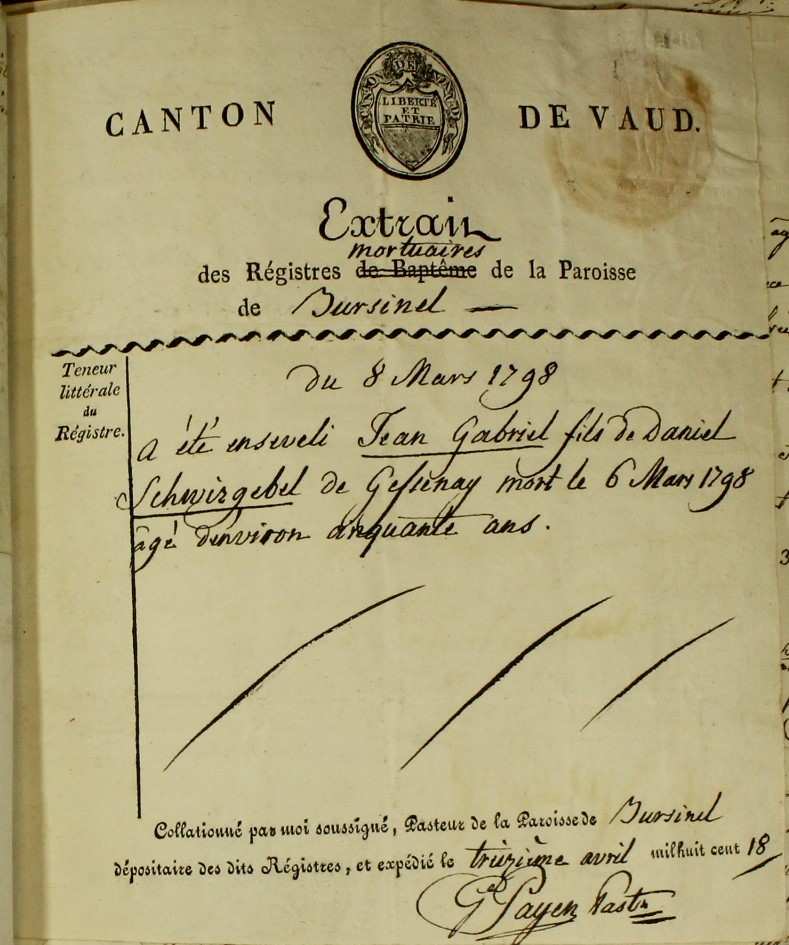 CANTON DE VAUD.
CANTON DE VAUD
LIBERTÉ
ET
PATRIE
Extrait
mortuaires
des Régistres de Baptême de la Paroisse
de Bursinel
Teneur
littérale
du
Régistre.
du 8 Mars 1798
a été enseveli Jean Gabriel fils de Daniel
Schwizgebel de Gessenay mort le 6 Mars 1798
âgé d'environ cinquante ans.
Collationné par moi soussigné, Pasteur de la Paroisse de Bursinel
dépositaire des dits Régistres, et expédié le trèizième avril milhuit cent 18
Payen Past